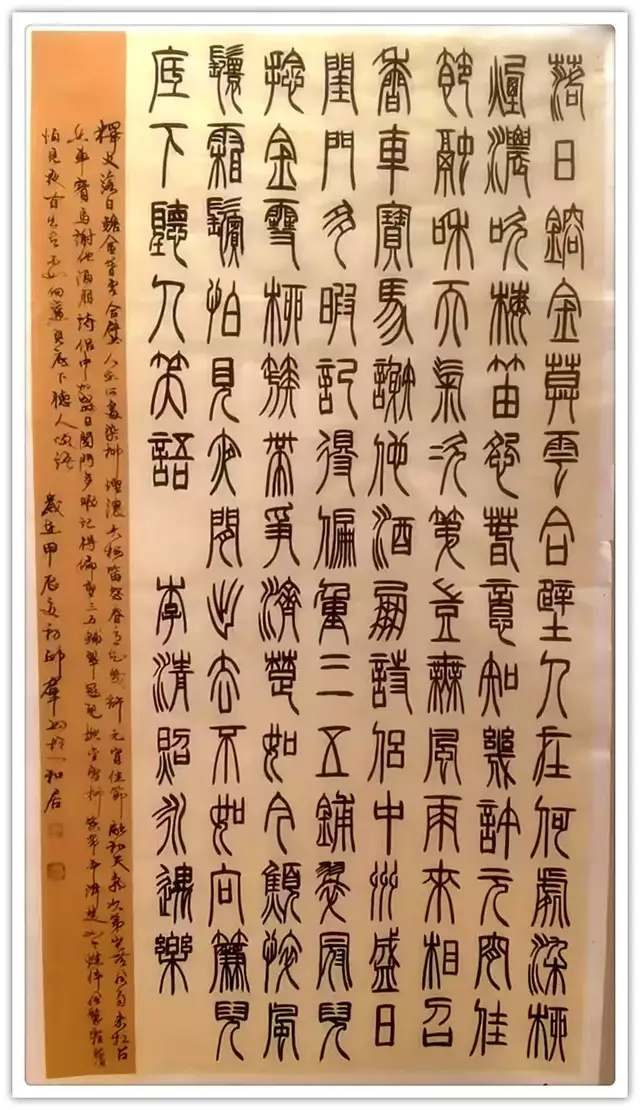 落日鎔金莫雲合壁人在何處染柳
煙濃吹梅笛怨春意知幾許元宵佳
節融和天氣次第豈無風雨來相召
香車寶馬謝他酒朋詩侶中州盛日
閨門多暇記得偏重三五鋪翠冠兒
捻金雪柳簇帶爭濟楚如今顦悴風
鬟霜鬢怕見夜間出去不如向簾兒
底下聽人笑語 李清照永遇樂
釋文落日鎔金暮雲合璧人在何處染柳煙濃吹梅笛怨春意知幾許元宵佳節融和天氣次第豈無風雨來相召
香車寶馬謝他酒朋詩侶中州盛日閨門多暇記得偏重三五鋪翠冠兒捻金雪柳簇帶爭濟楚如今憔悴風鬟霜鬢
怕見夜間出去不如向簾兒底下聽人笑語 歲在甲辰夏初